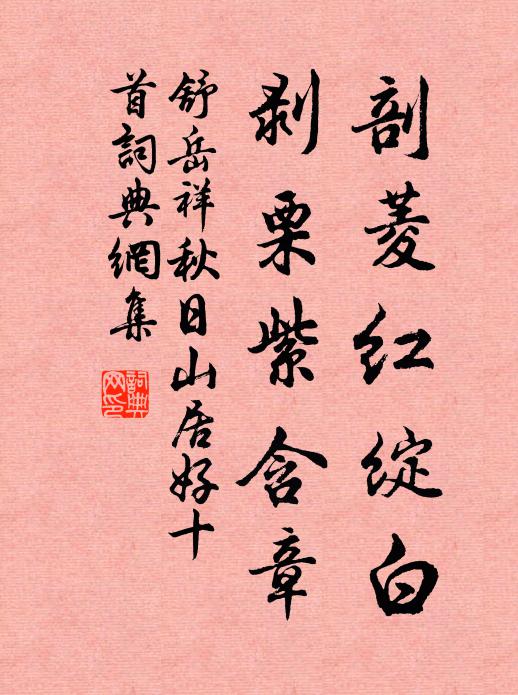 剖菱红綻白
剥栗紫含章
舒岳祥秋日山居好十
首詞典網集
詞典网印